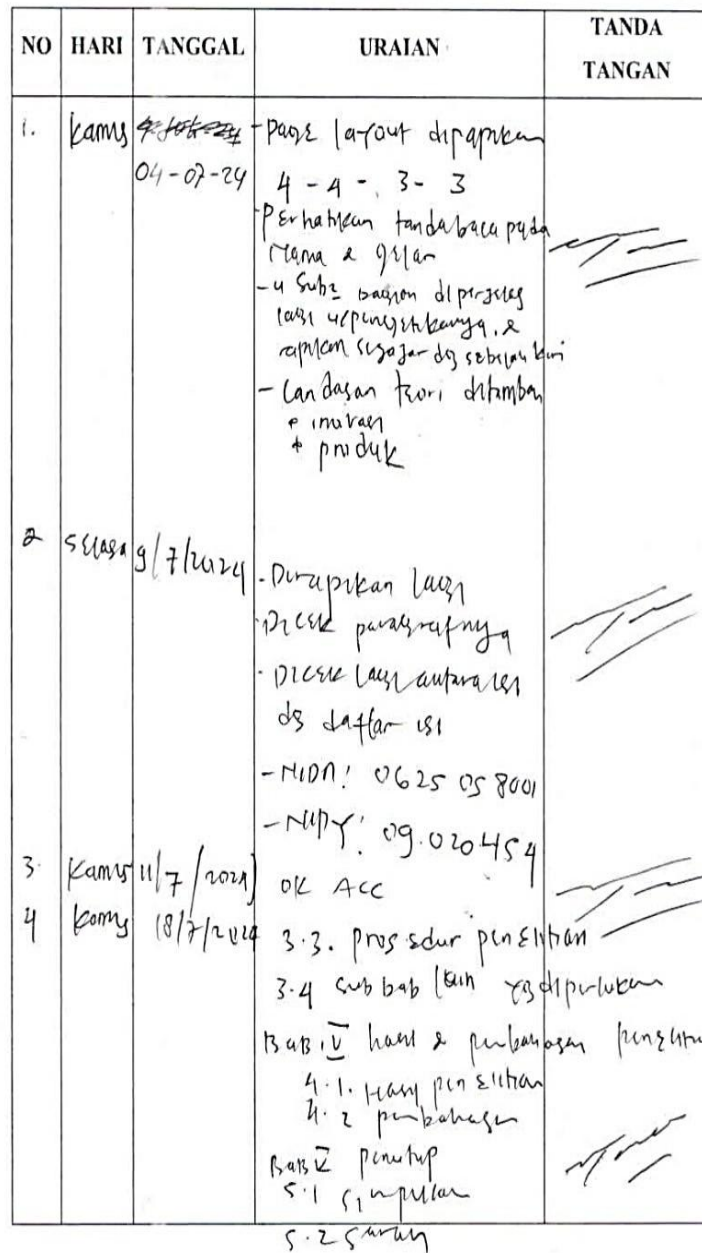 NO HARI TANGGAL URAIAN TANDA TANGAN
1. Kamis 04-07-24 - Page layout dirapikan
4 - 4 - 3 - 3
- Perhatikan tanda baca pada
nama & gelar
- 4 Sub2 bagian diperjelas
lagi u/penyetikannya, &
rapikan sejajar dg sebelah kiri
- Landasan teori ditambah
* inovasi
* produk
2 Selasa 9/7/2024 - Dirapikan lagi
- Dicek paragrafnya
- Dicek lagi antara isi
dg daftar isi
- NIDN: 0625 05 8001
- NIPY: 09.020454
3. Kamis 11/7/2024 OK ACC
4 Kamis 18/7/2024 3.3. prosedur penelitian
3.4 sub bab lain yg diperlukan
BAB IV hasil & pembahasan penelitian
4.1. Hasil penelitian
4.2 pembahasan
BAB V penutup
5.1 Simpulan
5.2 Saran